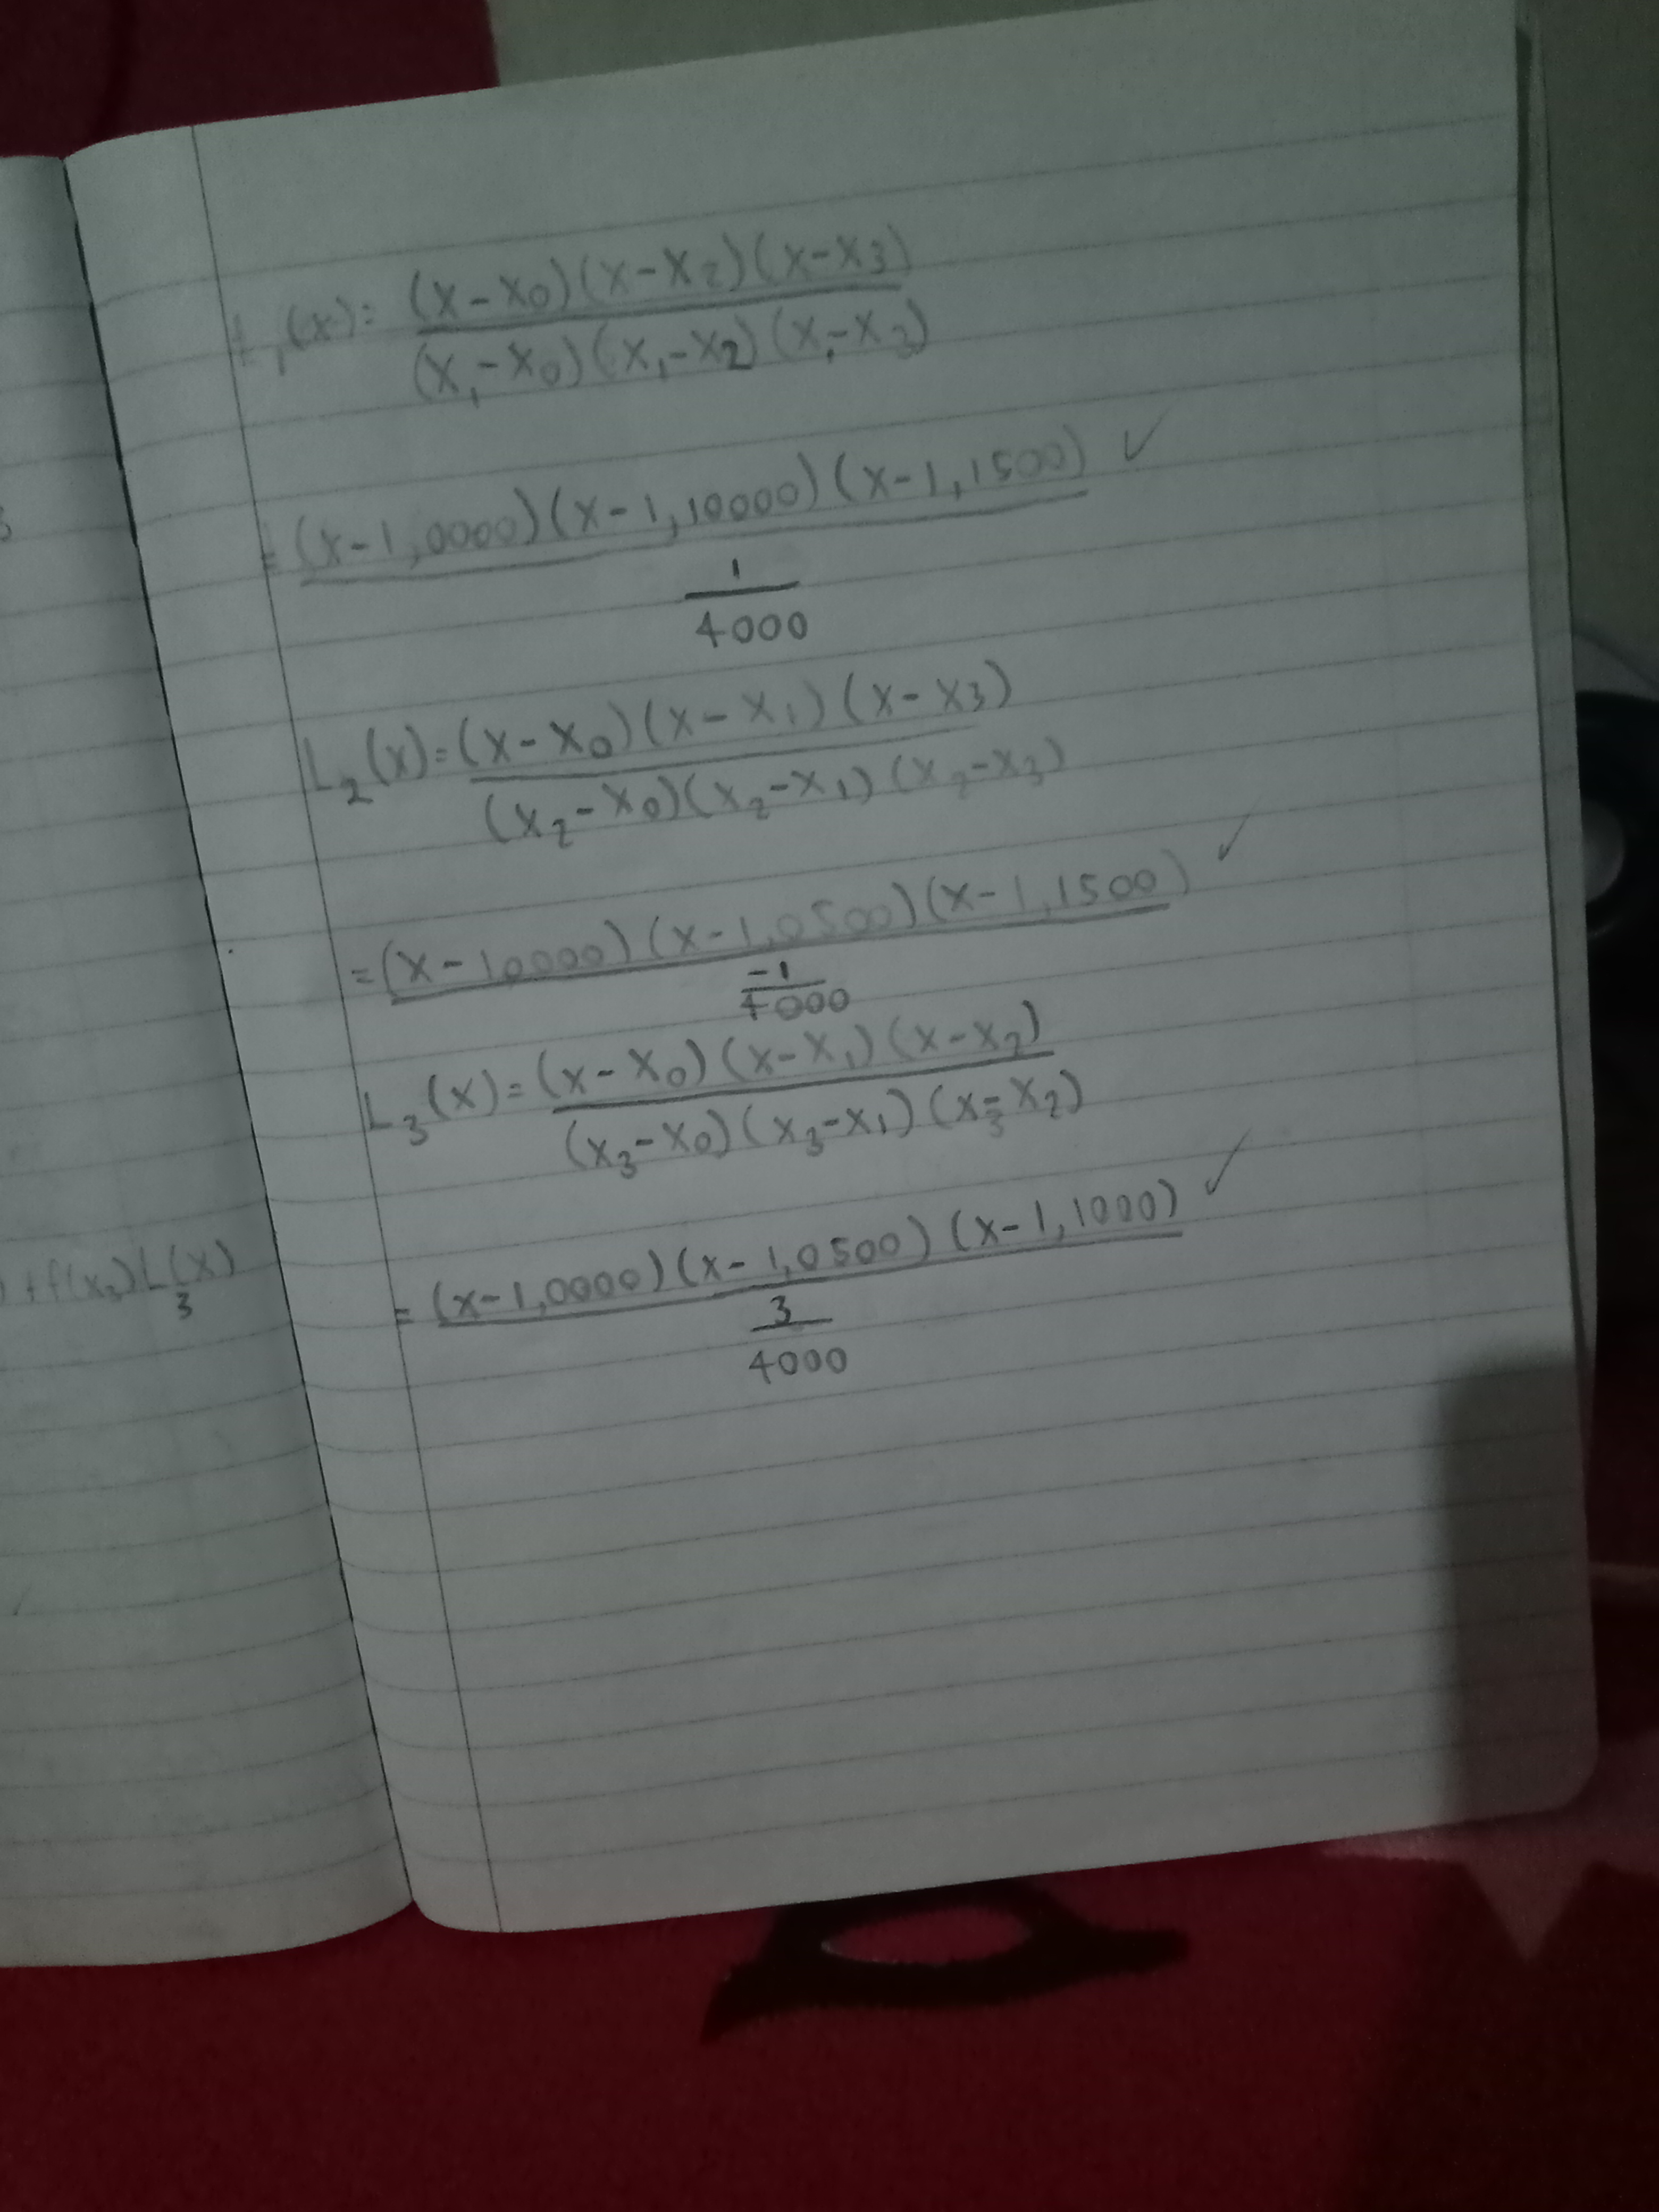 L₁(x)= (x-x₀)(x-x₂)(x-x₃)
(x₁-x₀)(x₁-x₂)(x₁-x₃)
= (x-1,0000)(x-1,10000)(x-1,1500) ✓
1
4000
L₂(x)=(x-x₀)(x-x₁)(x-x₃)
(x₂-x₀)(x₂-x₁)(x₂-x₃)
=(x-1,0000)(x-1,0500)(x-1,1500) ✓
-1
4000
L₃(x)=(x-x₀)(x-x₁)(x-x₂)
(x₃-x₀)(x₃-x₁)(x₃-x₂)
= (x-1,0000)(x-1,0500)(x-1,1000) ✓
3
4000
) +f(x₃)L₃(x)